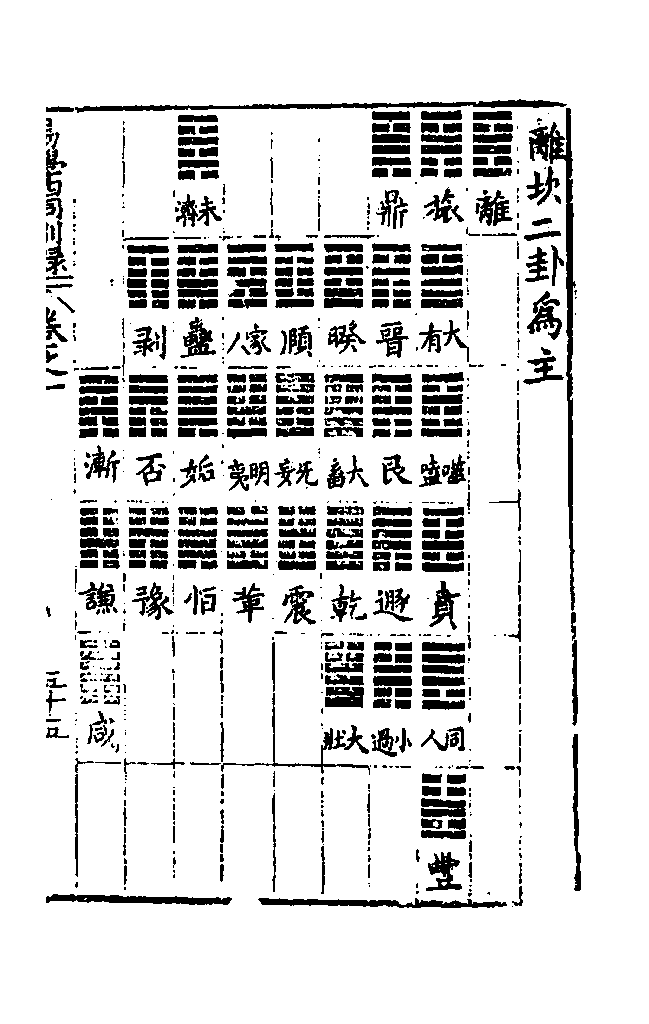 離坎二卦爲主
離 旅 鼎 未濟
大有 晉 睽 頤 家人 蠱 剥
噬嗑 艮 大畜 无妄 明夷 姤 否 漸
賁 遯 乾 震 革 恒 豫 謙
同人 小過 大壯 咸
豐
卷之一
五十五